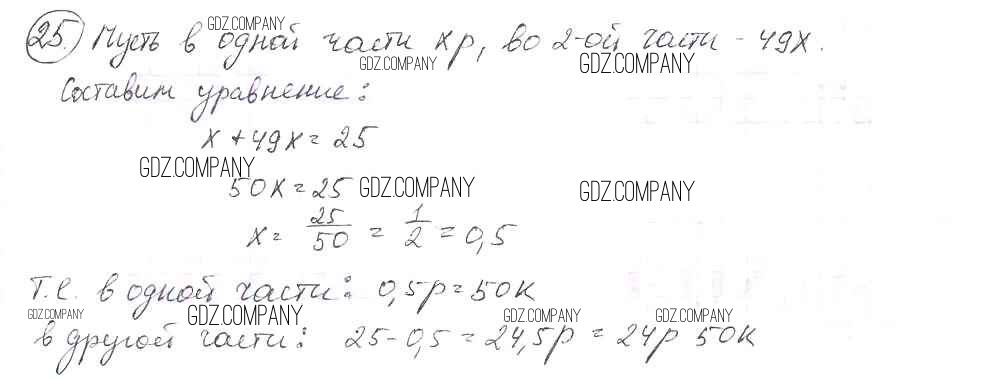 GDZ.COMPANY
25. Пусть в одной части xр, во 2-ой части - 49x.
GDZ.COMPANY GDZ.COMPANY
Составим уравнение:
x + 49x = 25
GDZ.COMPANY
50x = 25 GDZ.COMPANY GDZ.COMPANY
x = 25/50 = 1/2 = 0,5
Т.е. в одной части: 0,5р = 50к
GDZ.COMPANY GDZ.COMPANY GDZ.COMPANY GDZ.COMPANY
в другой части: 25 - 0,5 = 24,5р = 24р 50к